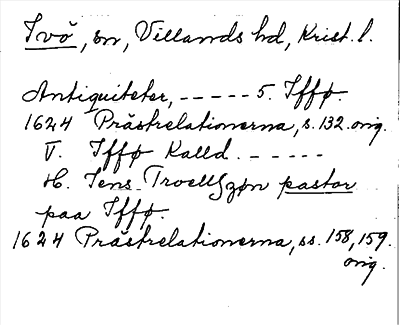 Ivö, sn, Villands hd, Krist. l.
Antiquiteter, ----- 5. Iffø.
1624 Prästrelationerna, s. 132. orig.
V. Iffø Kalld. -----
H. Jens Troellszøn pastor
paa Iffø.
1624 Prästrelationerna, ss. 158, 159.
orig.